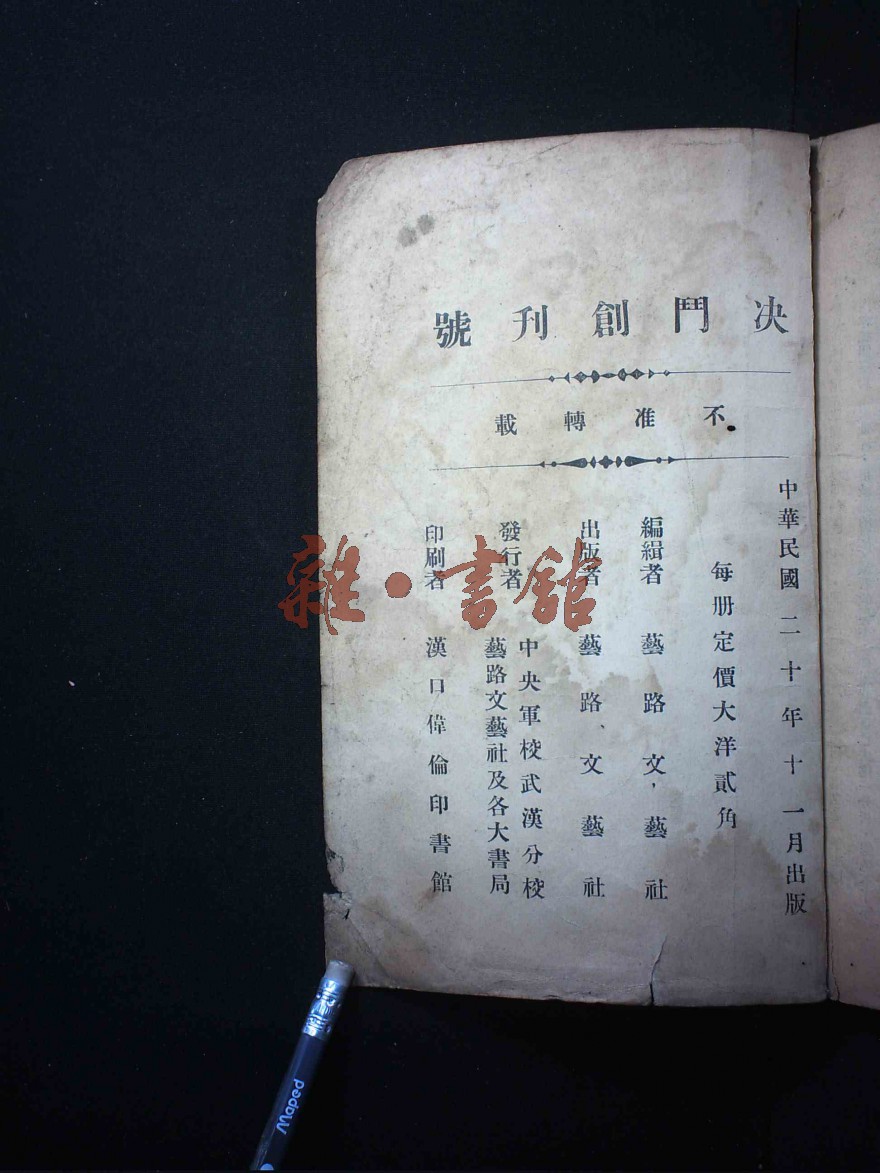 決鬥創刊號
不准轉載
中華民國二十年十一月出版
每册定價大洋貳角
編緝者 藝路文藝社
出版者 藝路文藝社
發行者 中央軍校武漢分校
藝路文藝社及各大書局
印刷者 漢口偉倫印書館
雜·書館
Maped